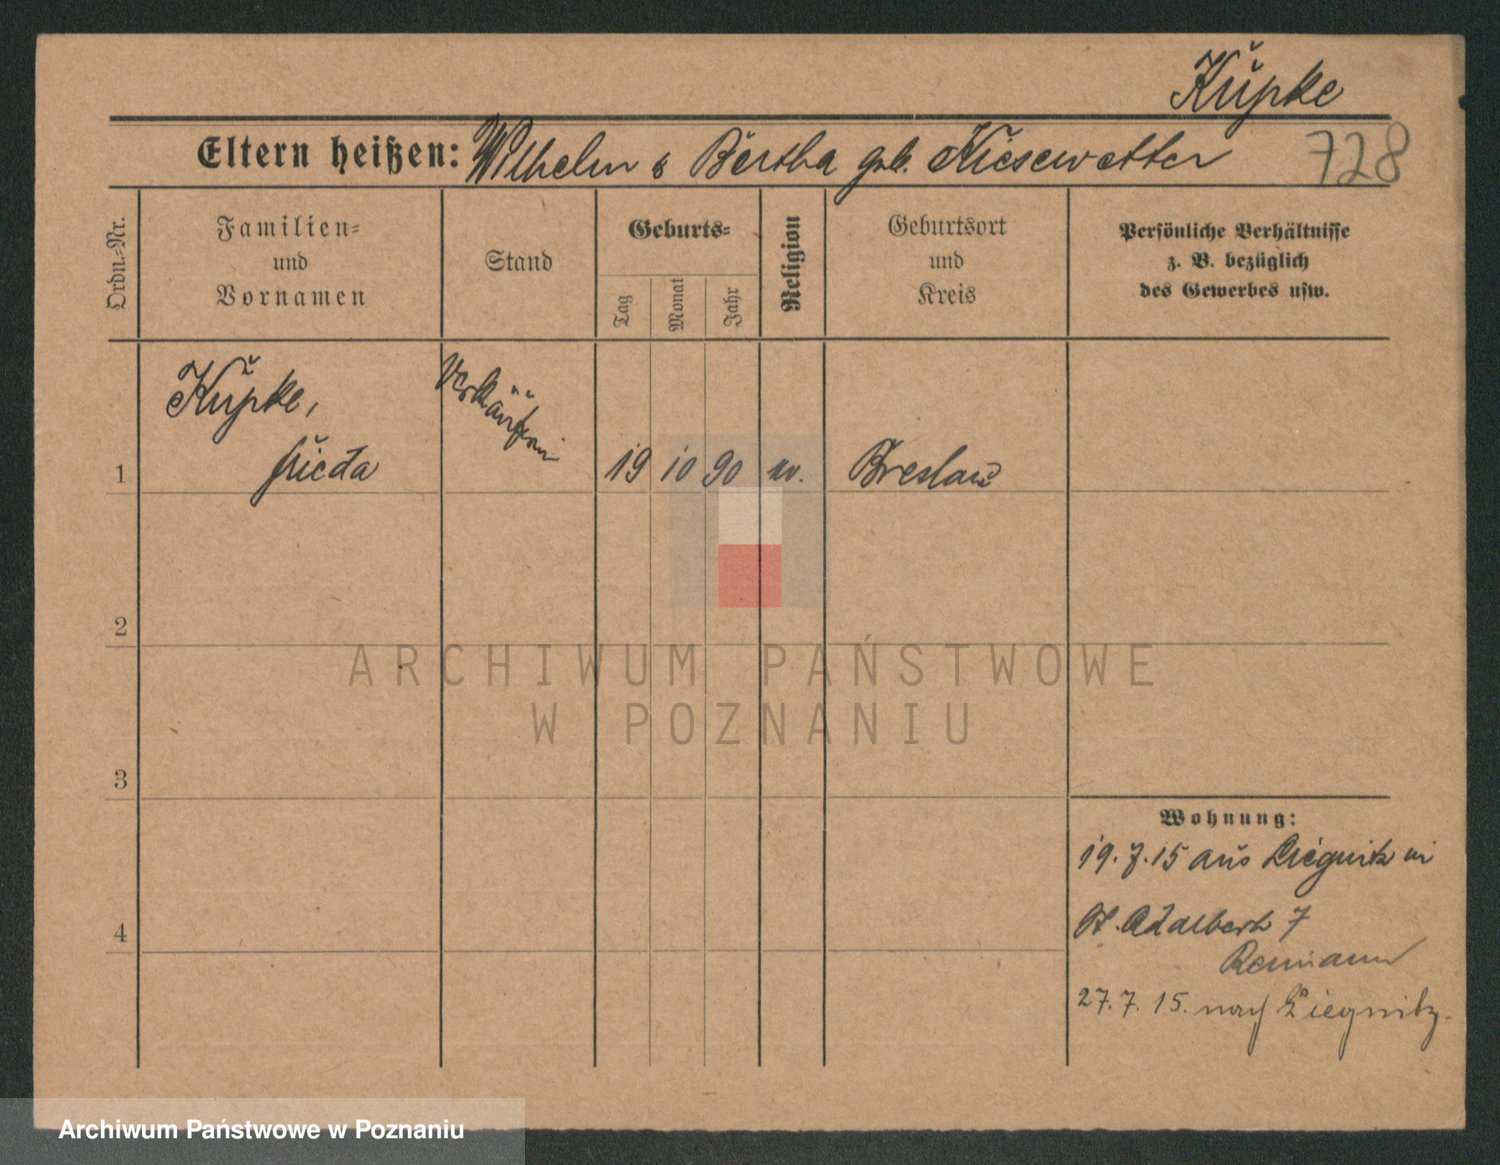 Kupke
Eltern heißen: Wilhelm & Bertha geb. Kiesewetter
728
Ordn.=Nr.
Familien=
und
Vornamen
Stand
Geburts=
Tag
Monat
Jahr
Religion
Geburtsort
und
Kreis
Persönliche Verhältnisse
z. B. bezüglich
des Gewerbes usw.
Kupke,
Frieda
Verkäuferin
1
19
10
90
ev.
Breslau
2
ARCHIWUM PAŃSTWOWE
W POZNANIU
3
Wohnung:
19.7.15 aus Liegnitz in
St. Adalbert 7
4
27.7.15. nach Liegnitz.
Archiwum Państwowe w Poznaniu